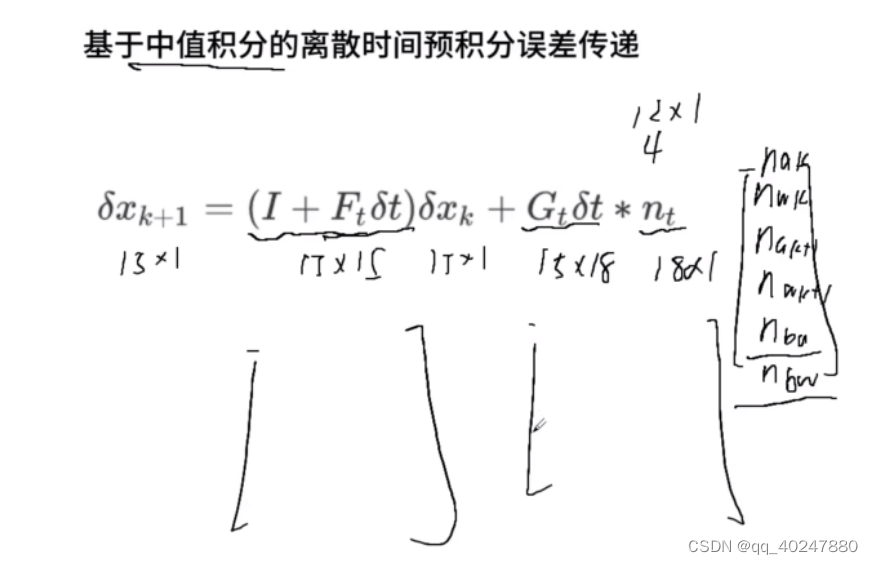 基于中值积分的离散时间预积分误差传递
12×1
4
δx_{k+1} = (I + F_tδt)δx_k + G_tδt * n_t
15×1 15×15 15×1 15×18 18×1
n_{ak}
n_{wk}
n_{ak+1}
n_{wk+1}
n_{ba}
n_{bw}
CSDN @qq_40247880